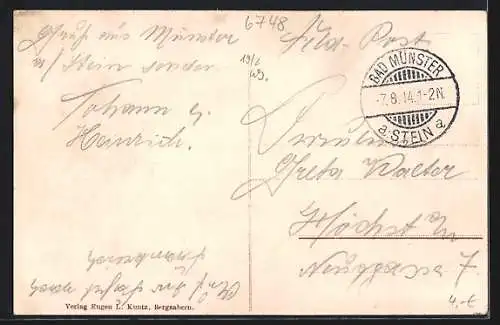 Gruß aus Münster
a/ Stein sendet
Johann u.
Heinrich.
Auf der Fahrt nach
Frankreich
Verlag Eugen L. Kuntz, Bergzabern.
6748
19/2
Feld-Post
BAD MÜNSTER
-7.8.14.1-2N.
a. STEIN a
Greta Walter
Höchst a/M
7.
4.-€